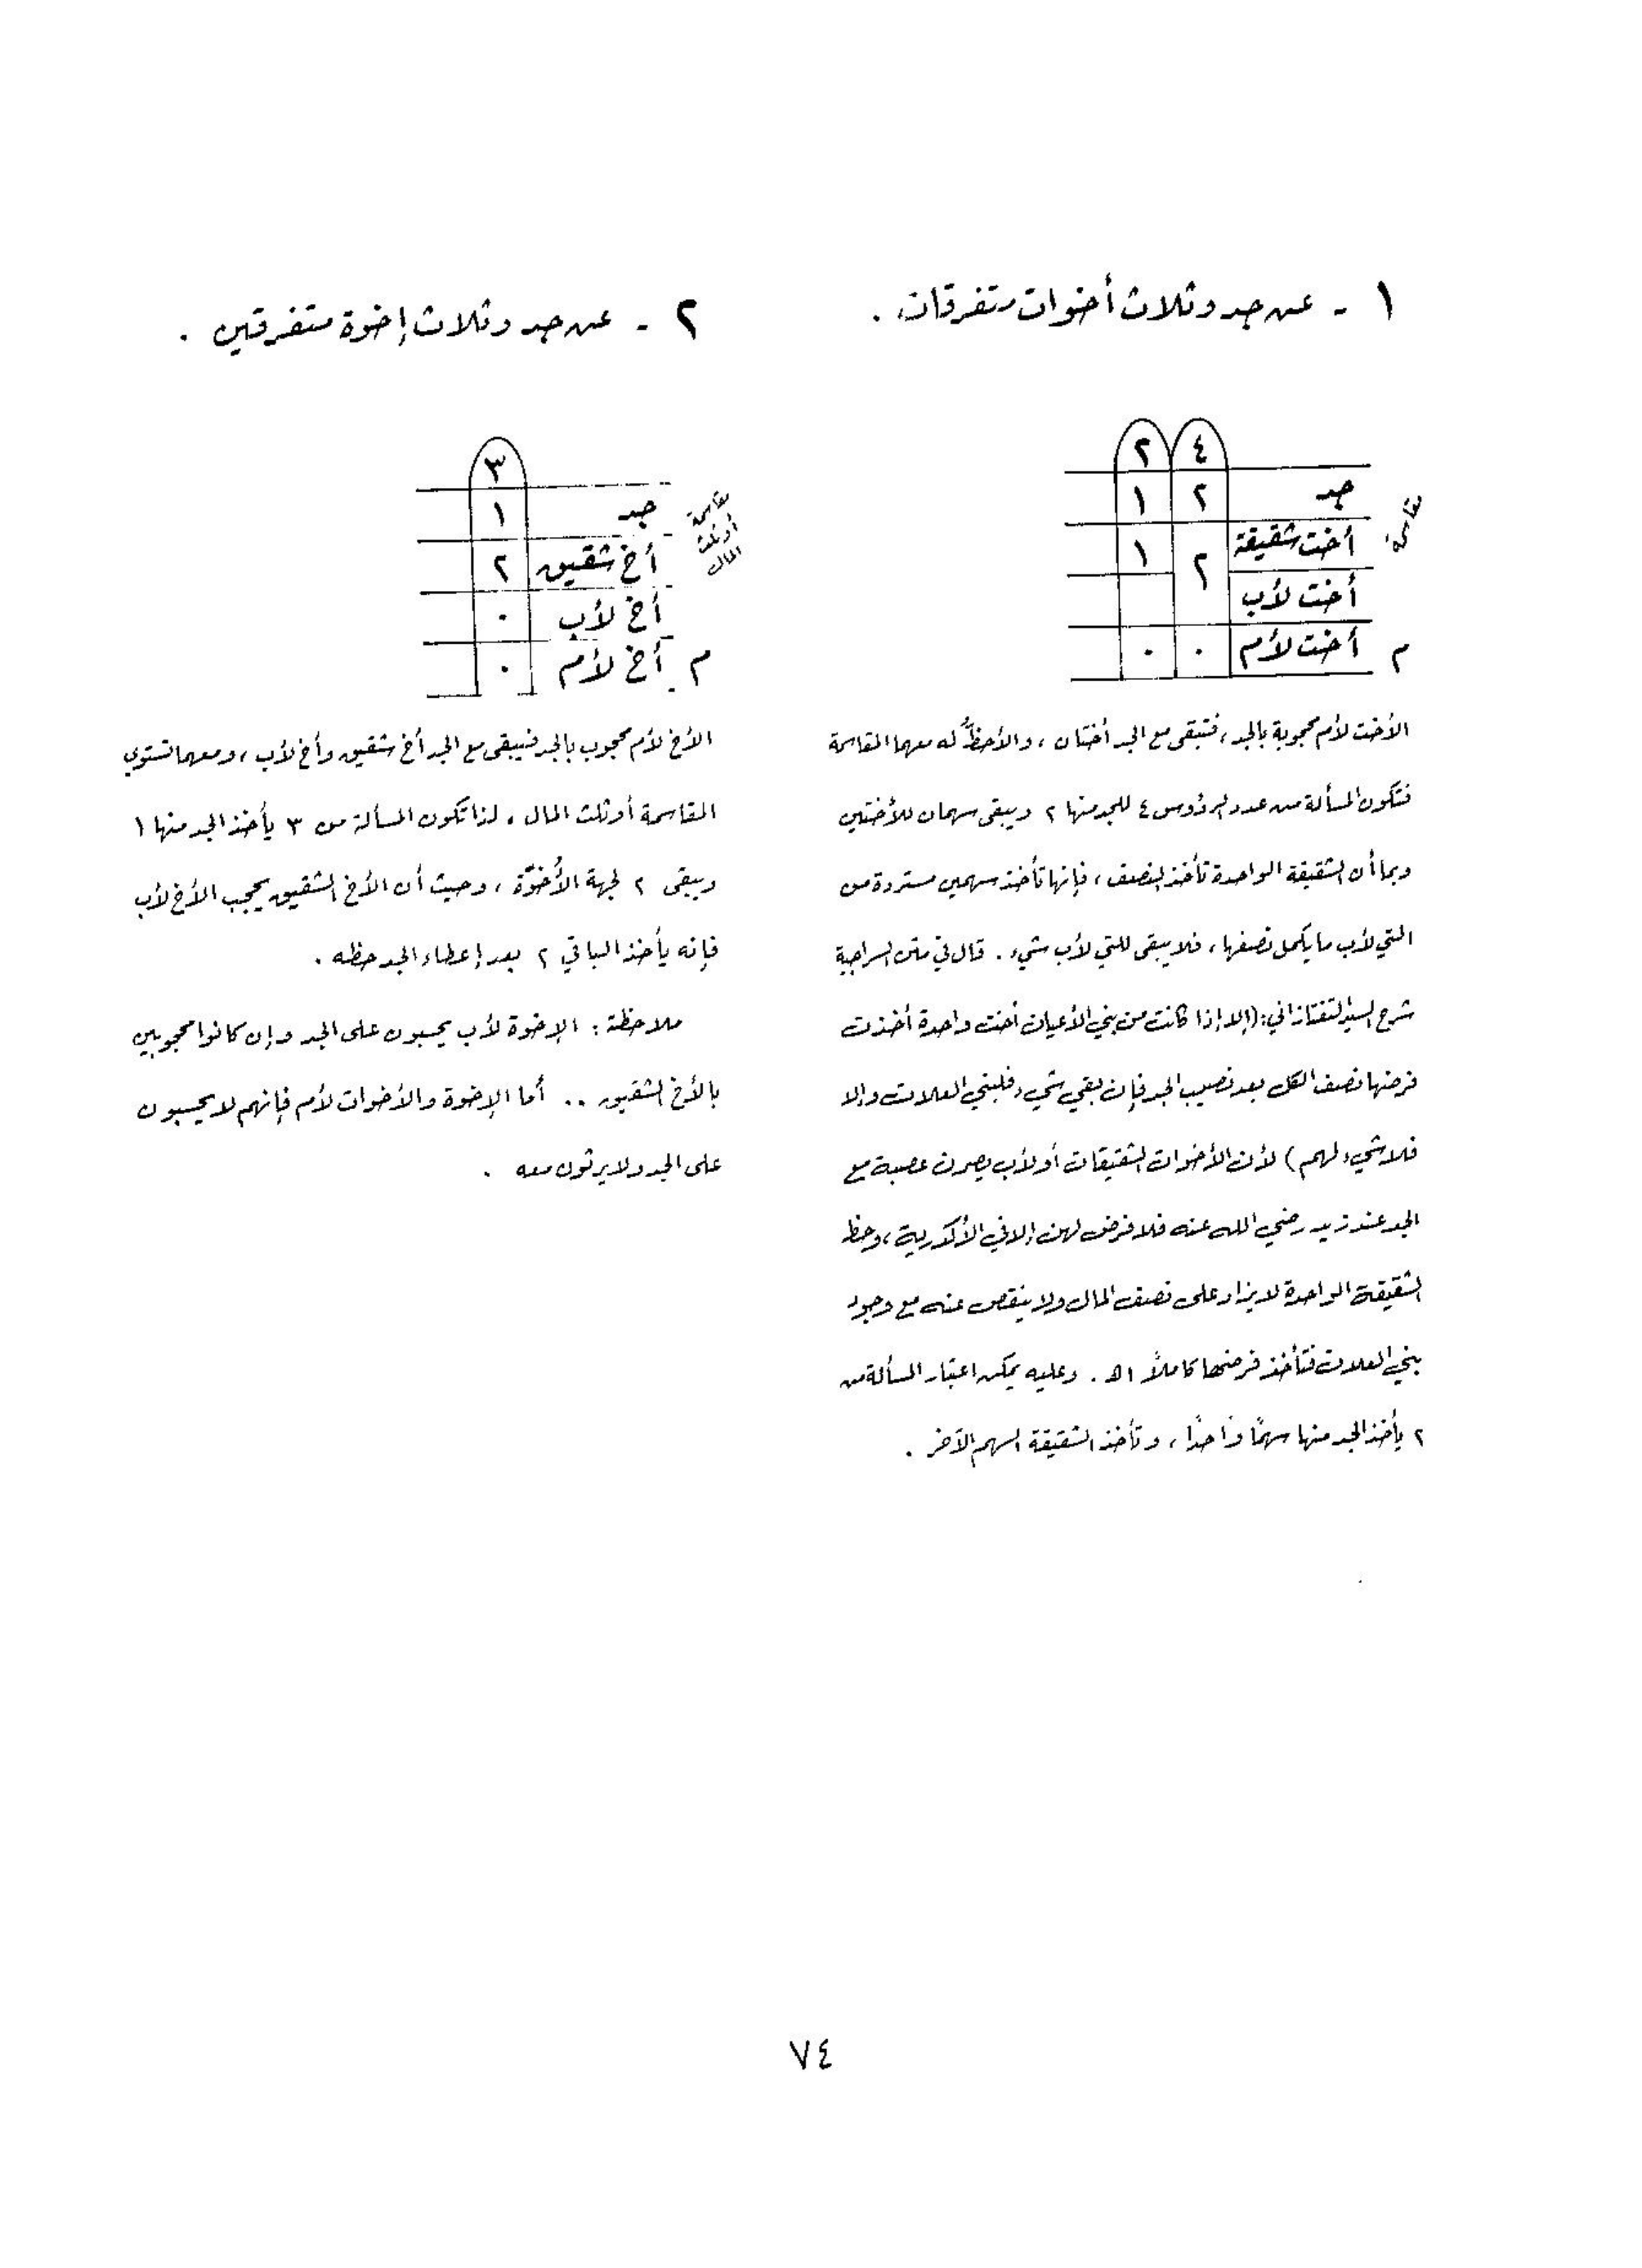 ١ - عن جد وثلاث أخوات متفرقات .
٤ ٢
مقاسمة
جد ٢ ١
أخت شقيقة ٢ ١
أخت لأب
م أخت لأم ٠ ٠
الأخت لأم محجوبة بالجد، فتبقى مع الجد أختان، والأحظُّ له معهما المقاسمة
فتكون المسألة من عدد الرؤوس ٤ للجد منها ٢ ويبقى سهمان للأختين
وبما أن الشقيقة الواحدة تأخذ النصف، فإنها تأخذ سهمين مستردة من
التي لأب ما يكمل نصفها، فلا يبقى للتي لأب شيء . قال في متن السراجية
شرح التفتازاني: (إلا إذا كانت من بني الأعيان أخت واحدة أخذت
فرضها نصف الكل بعد نصيب الجد فإن بقي شيء فلبني العلات وإلا
فلا شيء لهم) لأن الأخوات الشقيقات أو لأب يصرن عصبة مع
الجد عند زيد رضي الله عنه فلا فرض لهن إلا في الأكدرية، وحظ
الشقيقة الواحدة لا يزاد على نصف المال ولا ينقص عنه مع وجود
بني العلات فتأخذ فرضها كاملاً اهـ . وعليه يمكن اعتبار المسألة من
٢ يأخذ الجد منها سهمًا واحدًا، وتأخذ الشقيقة السهم الآخر .
٢ - عن جد وثلاث إخوة متفرقين .
٣
مقاسمة
أو ثلث
المال
جد ١
أخ شقيق ٢
أخ لأب ٠
م أخ لأم ٠
الأخ لأم محجوب بالجد فيبقى مع الجد أخ شقيق وأخ لأب، ومعهما تستوي
المقاسمة أو ثلث المال . لذا تكون المسألة من ٣ يأخذ الجد منها ١
ويبقى ٢ لجهة الأُخوّة ، وحيث أن الأخ الشقيق يحجب الأخ لأب
فإنه يأخذ الباقي ٢ بعد إعطاء الجد حظه .
ملاحظة : الإخوة لأب يحسبون على الجد وإن كانوا محجوبين
بالأخ الشقيق .. أما الإخوة والأخوات لأم فإنهم لا يحسبون
على الجد ولا يرثون معه .
٧٤